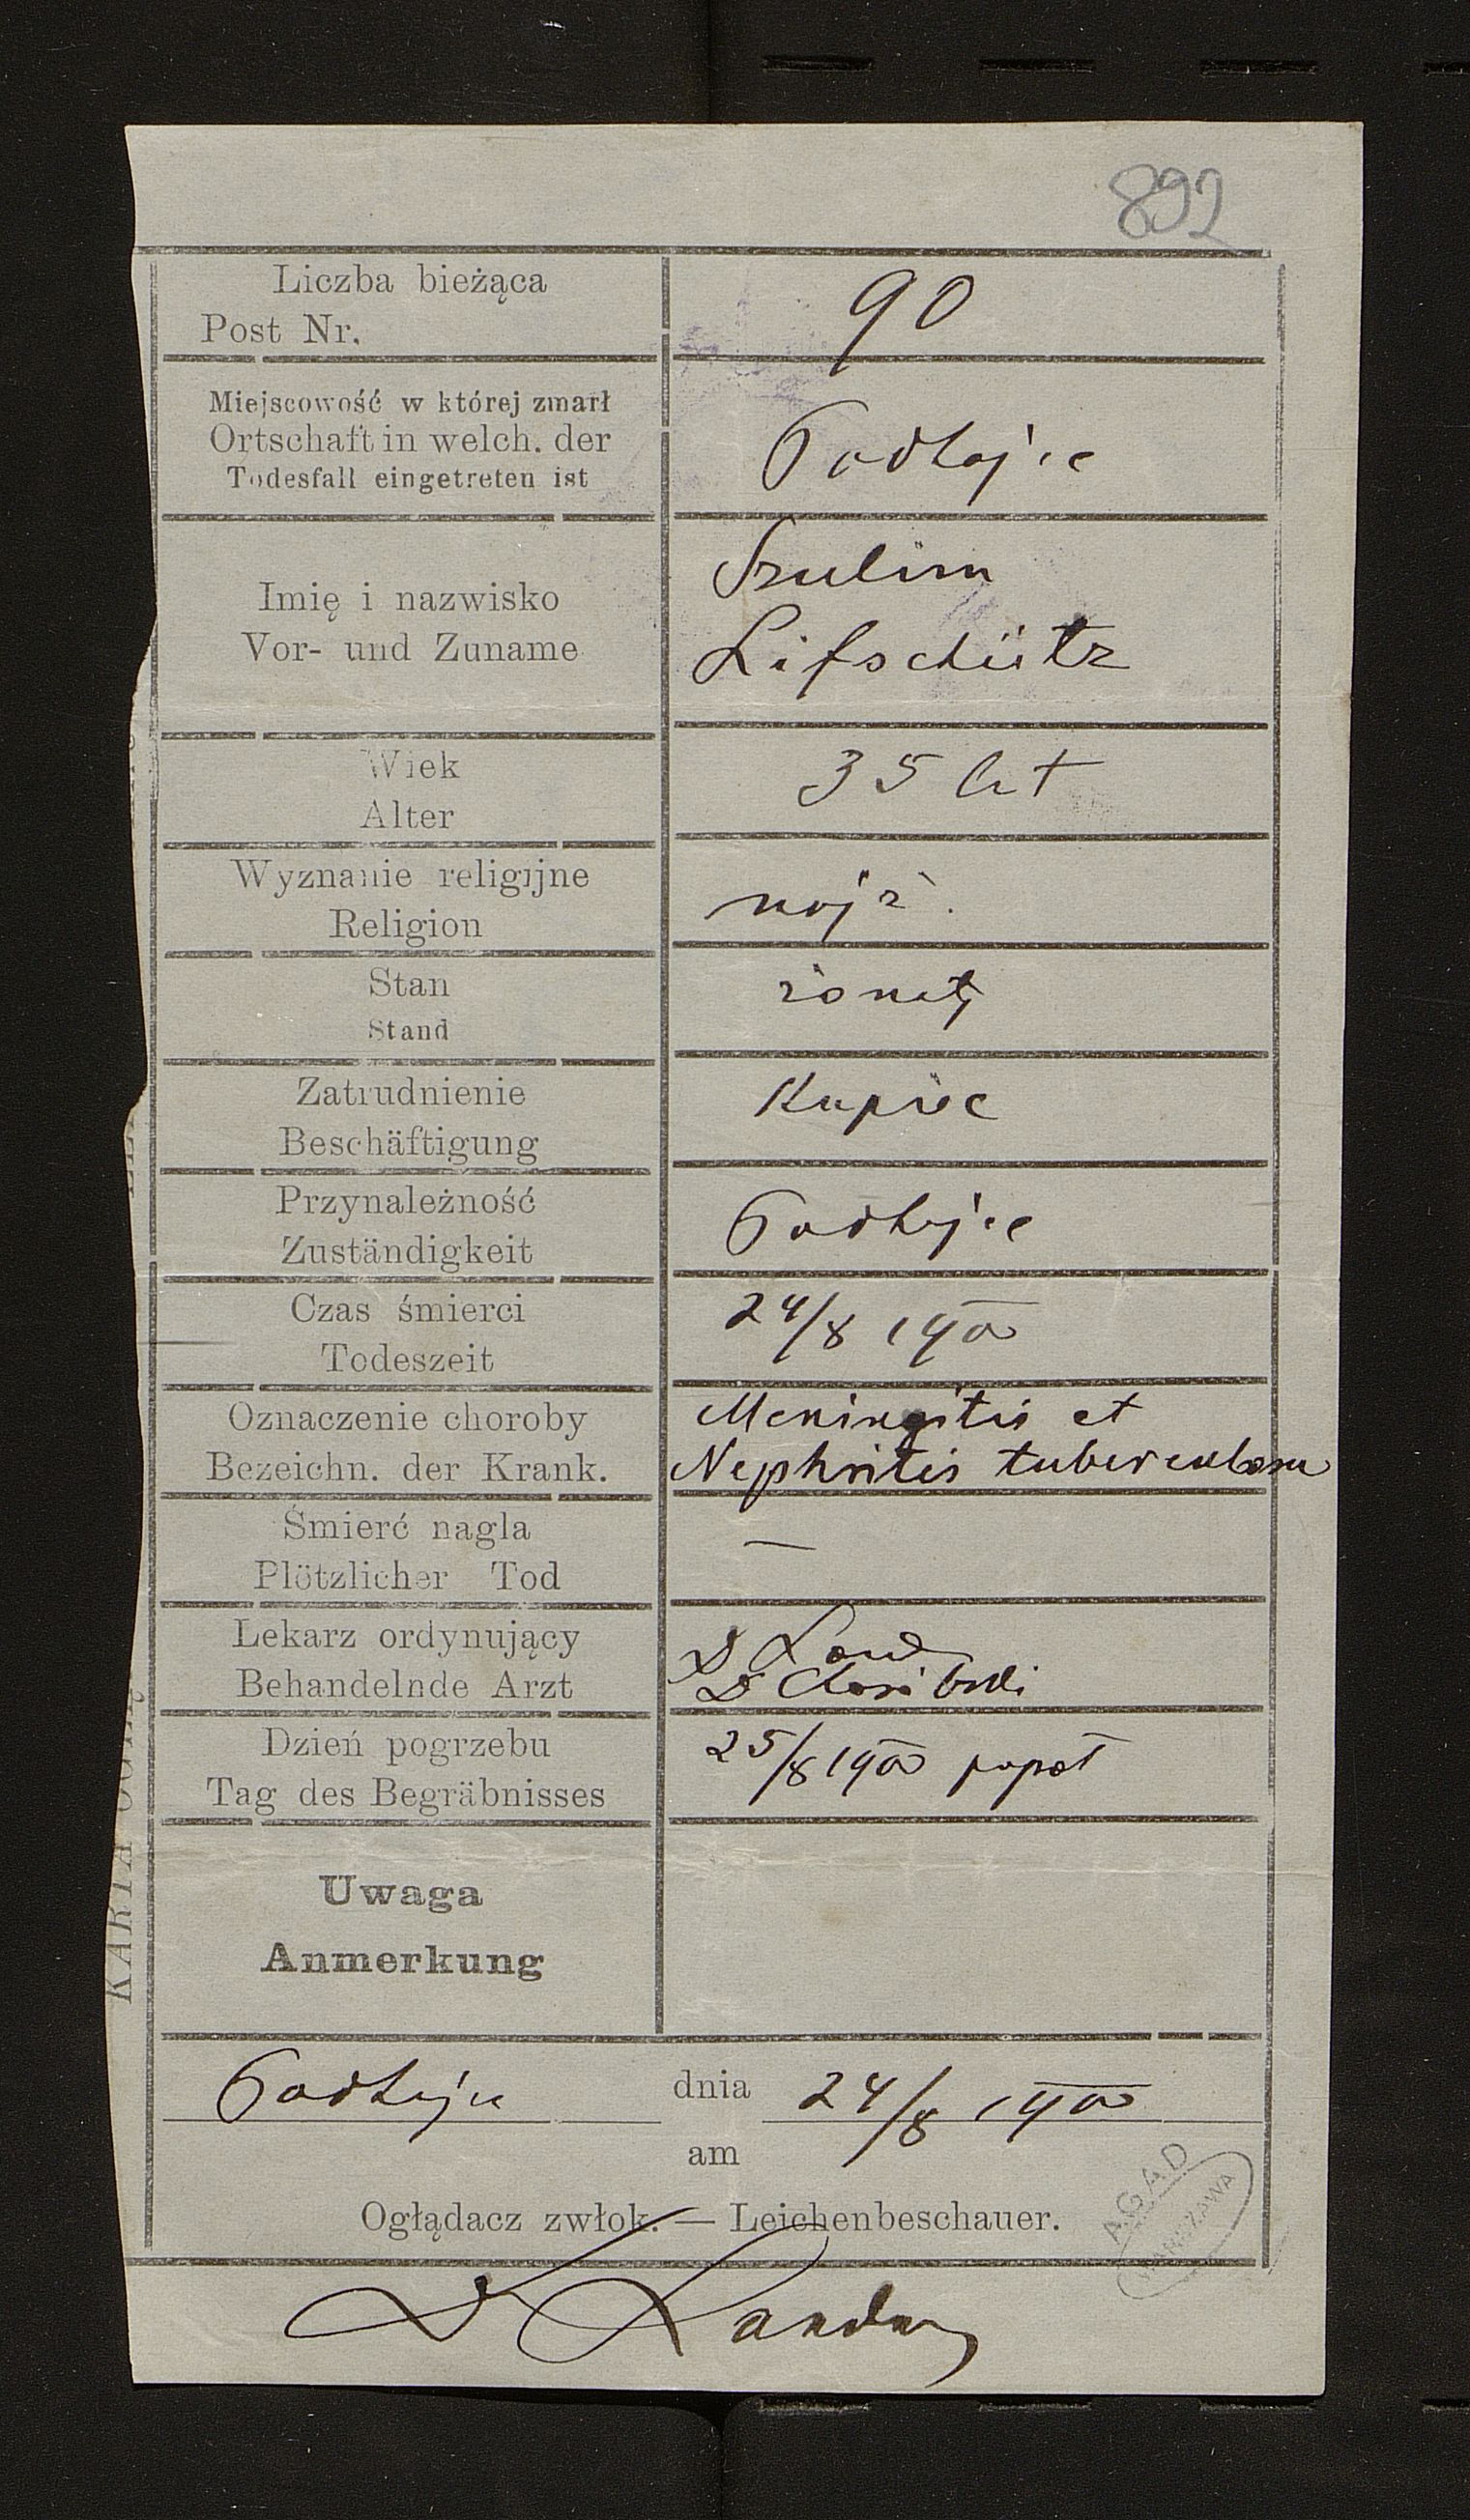 892
Liczba bieżąca
Post Nr.
90
Miejscowość w której zmarł
Ortschaft in welch. der
Todesfall eingetreten ist
Podhajce
Imię i nazwisko
Vor- und Zuname
Szulim
Lifschütz
Wiek
Alter
35 lat
Wyznanie religijne
Religion
mojż.
Stan
Stand
żonaty
Zatrudnienie
Beschäftigung
Kupiec
Przynależność
Zuständigkeit
Podhajce
Czas śmierci
Todeszeit
24/8 1900
Oznaczenie choroby
Bezeichn. der Krank.
Meningitis et
Nephritis tuberculosa
Śmierć nagla
Plötzlicher Tod
—
Lekarz ordynujący
Behandelnde Arzt
D
D
Dzień pogrzebu
Tag des Begräbnisses
25/8 1900 popoł
Uwaga
Anmerkung
Podhajce dnia 24/8 1900
am
Oglądacz zwłok. — Leichenbeschauer.
AGAD
WARSZAWA
D Landau
KARTA